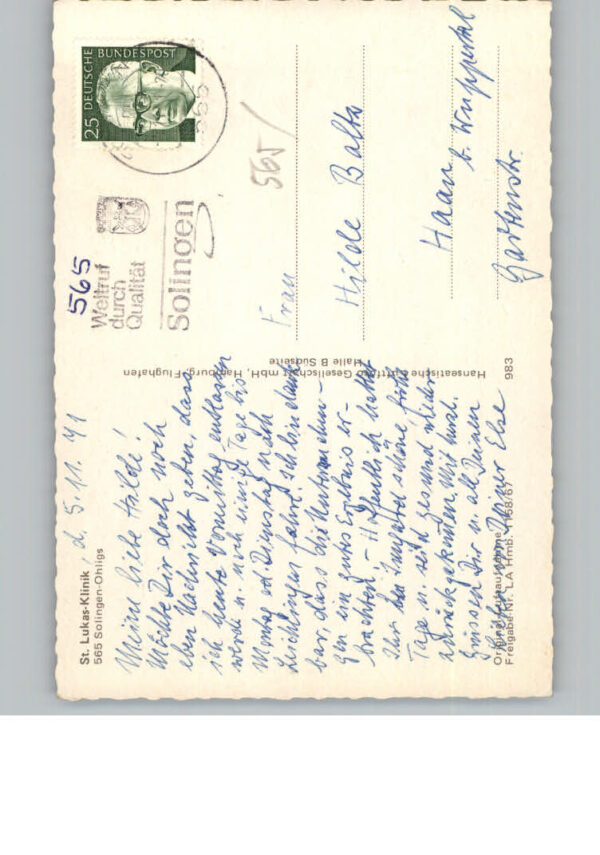 St. Lukas-Klinik
565 Solingen-Ohligs
d. 5.11.71
Meine liebe Hilde!
Möchte Dir doch noch
eben Nachricht geben, dass
ich heute Vormittag entlassen
werde u. noch einige Tage bis
Montag od. Dienstag nach
Leichlingen fahre. Ich bin dank-
bar, dass die Unters. ohn-
gen ein gutes Ergebnis er-
brachten. - Hoffentlich hattet
Ihr im schöne frohe
Tage u. seid gesund wieder
zurückgekommen. Mit herzl.
Grüssen Dir u. all Deinen
Lieben von Deiner Else
Original-Luftaufnahme
Freigabe-Nr. LA Hmb. 1158/67
Hanseatische Luftfoto Gesellschaft mbH, Hamburg-Flughafen
Halle B Südseite
983
565
Weltruf
durch
Qualität
Solingen
25 DEUTSCHE BUNDESPOST
565
565/
Frau
Hilde Balto
Haan
b. Wuppertal
Gartenstr.